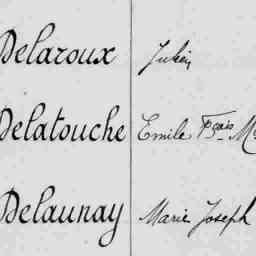 Delaroux Julien
Delatouche Emile Fçais
Delaunay Marie Joseph